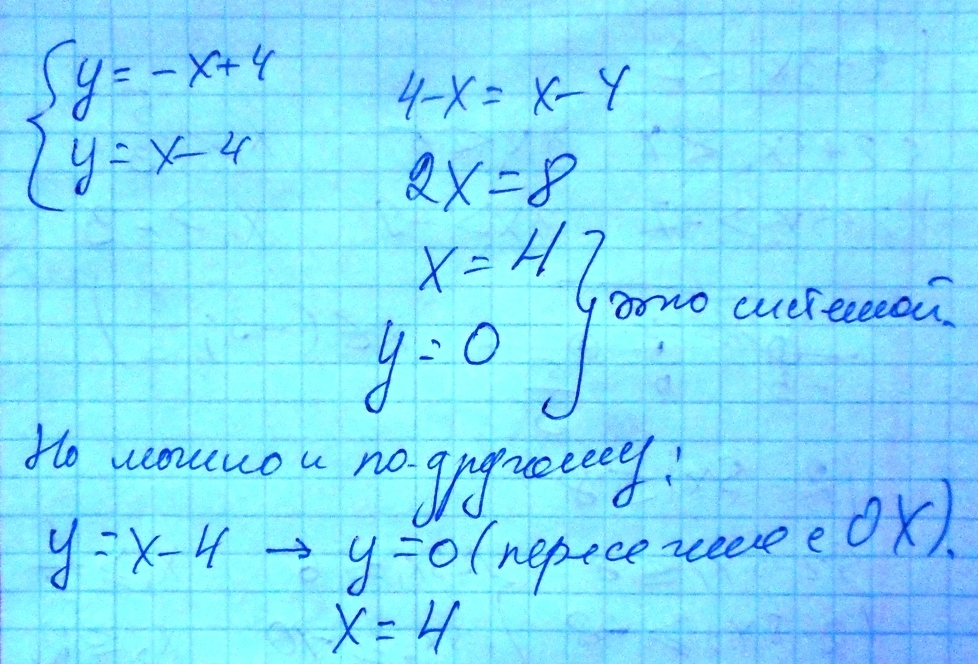 y = -x+4
y = x-4
4-x = x-4
2x = 8
x = 4
y = 0
это системой.
Но можно и по-другому:
y = x-4 → y = 0 (пересечение с OX).
x = 4